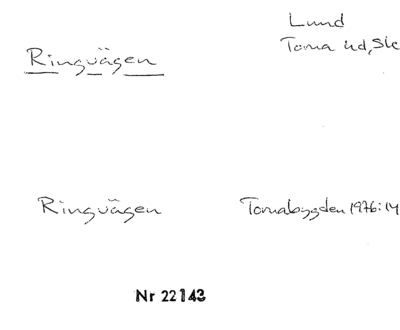 Lund
Ringvägen
Torna hd, Sk
Ringvägen
Tornabygden 1976:14
Nr 22143